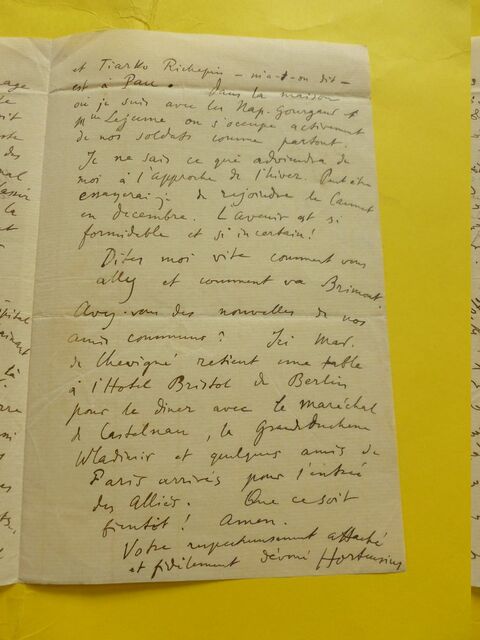 et Tiarko Richepin – m'a-t-on dit –
est à Pau. Dans la maison
où je suis avec les Nap. Gourgaud &
Mme Lejeune on s'occupe activement
de nos soldats comme partout.
Je ne sais ce qui adviendra de
moi à l'approche de l'hiver. Peut être
essayerai-je de rejoindre le Cannet
en décembre. L'Avenir est si
formidable et si incertain!
Dites moi vite comment vous
allez et comment va Brimont.
Avez-vous des nouvelles de nos
amis communs? Ici Mad.
de Chevigné retient une table
à l'Hotel Bristol de Berlin
pour le diner avec le maréchal
de Castelnau, la Grand Duchesse
Wladimir et quelques amis de
Paris arrivés pour l'entrée
des Alliés. Que ce soit
bientôt! Amen.
Votre respectueusement attaché
et fidèlement dévoué Hortensius